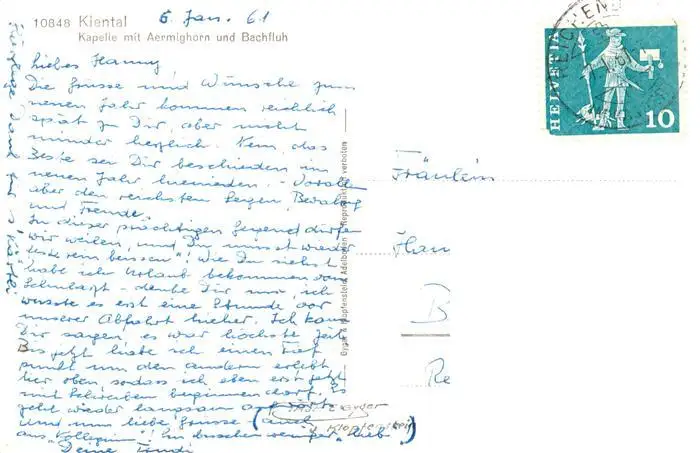 10848 Kiental
Kapelle mit Aermighorn und Bachfluh
6. Jan. 61
Liebes Hanny
Die Grüsse und Wünsche zum
neuen Jahr kommen reichlich
spät zu Dir, aber nicht
minder herzlich. Nun, das
Beste sei Dir beschieden im
neuen Jahr hienieden. - Vorallem
aber den reichsten Segen, Bewahrg
und Freude.
In dieser prächtigen Gegend dürfen
wir weilen, und Du musst wieder
beissen! Wie Du siehst
habe ich Urlaub bekommen vom
Schularzt - denke Dir nur, ich
wusste es erst eine Stunde vor
unserer Abfahrt hieher. Ich kann
Dir sagen, es war höchste Zeit
Bis jetzt habe ich einen Tief
punkt um den andern erlebt
hier oben, sodass ich eben erst jetzt
mit Schreiben beginnen darf. Es
geht wieder langsam
Und nun liebe Grüsse (auch
aus "Kollegium"! Ein bisschen weniger "lieb")
Deine
Dank für
Gyger & Klopfenstein, Adelboden Reproduktion verboten
Gyger
Klopfenstein
Fräulein
Han
B
Re
HELVETIA
10
REICHEN